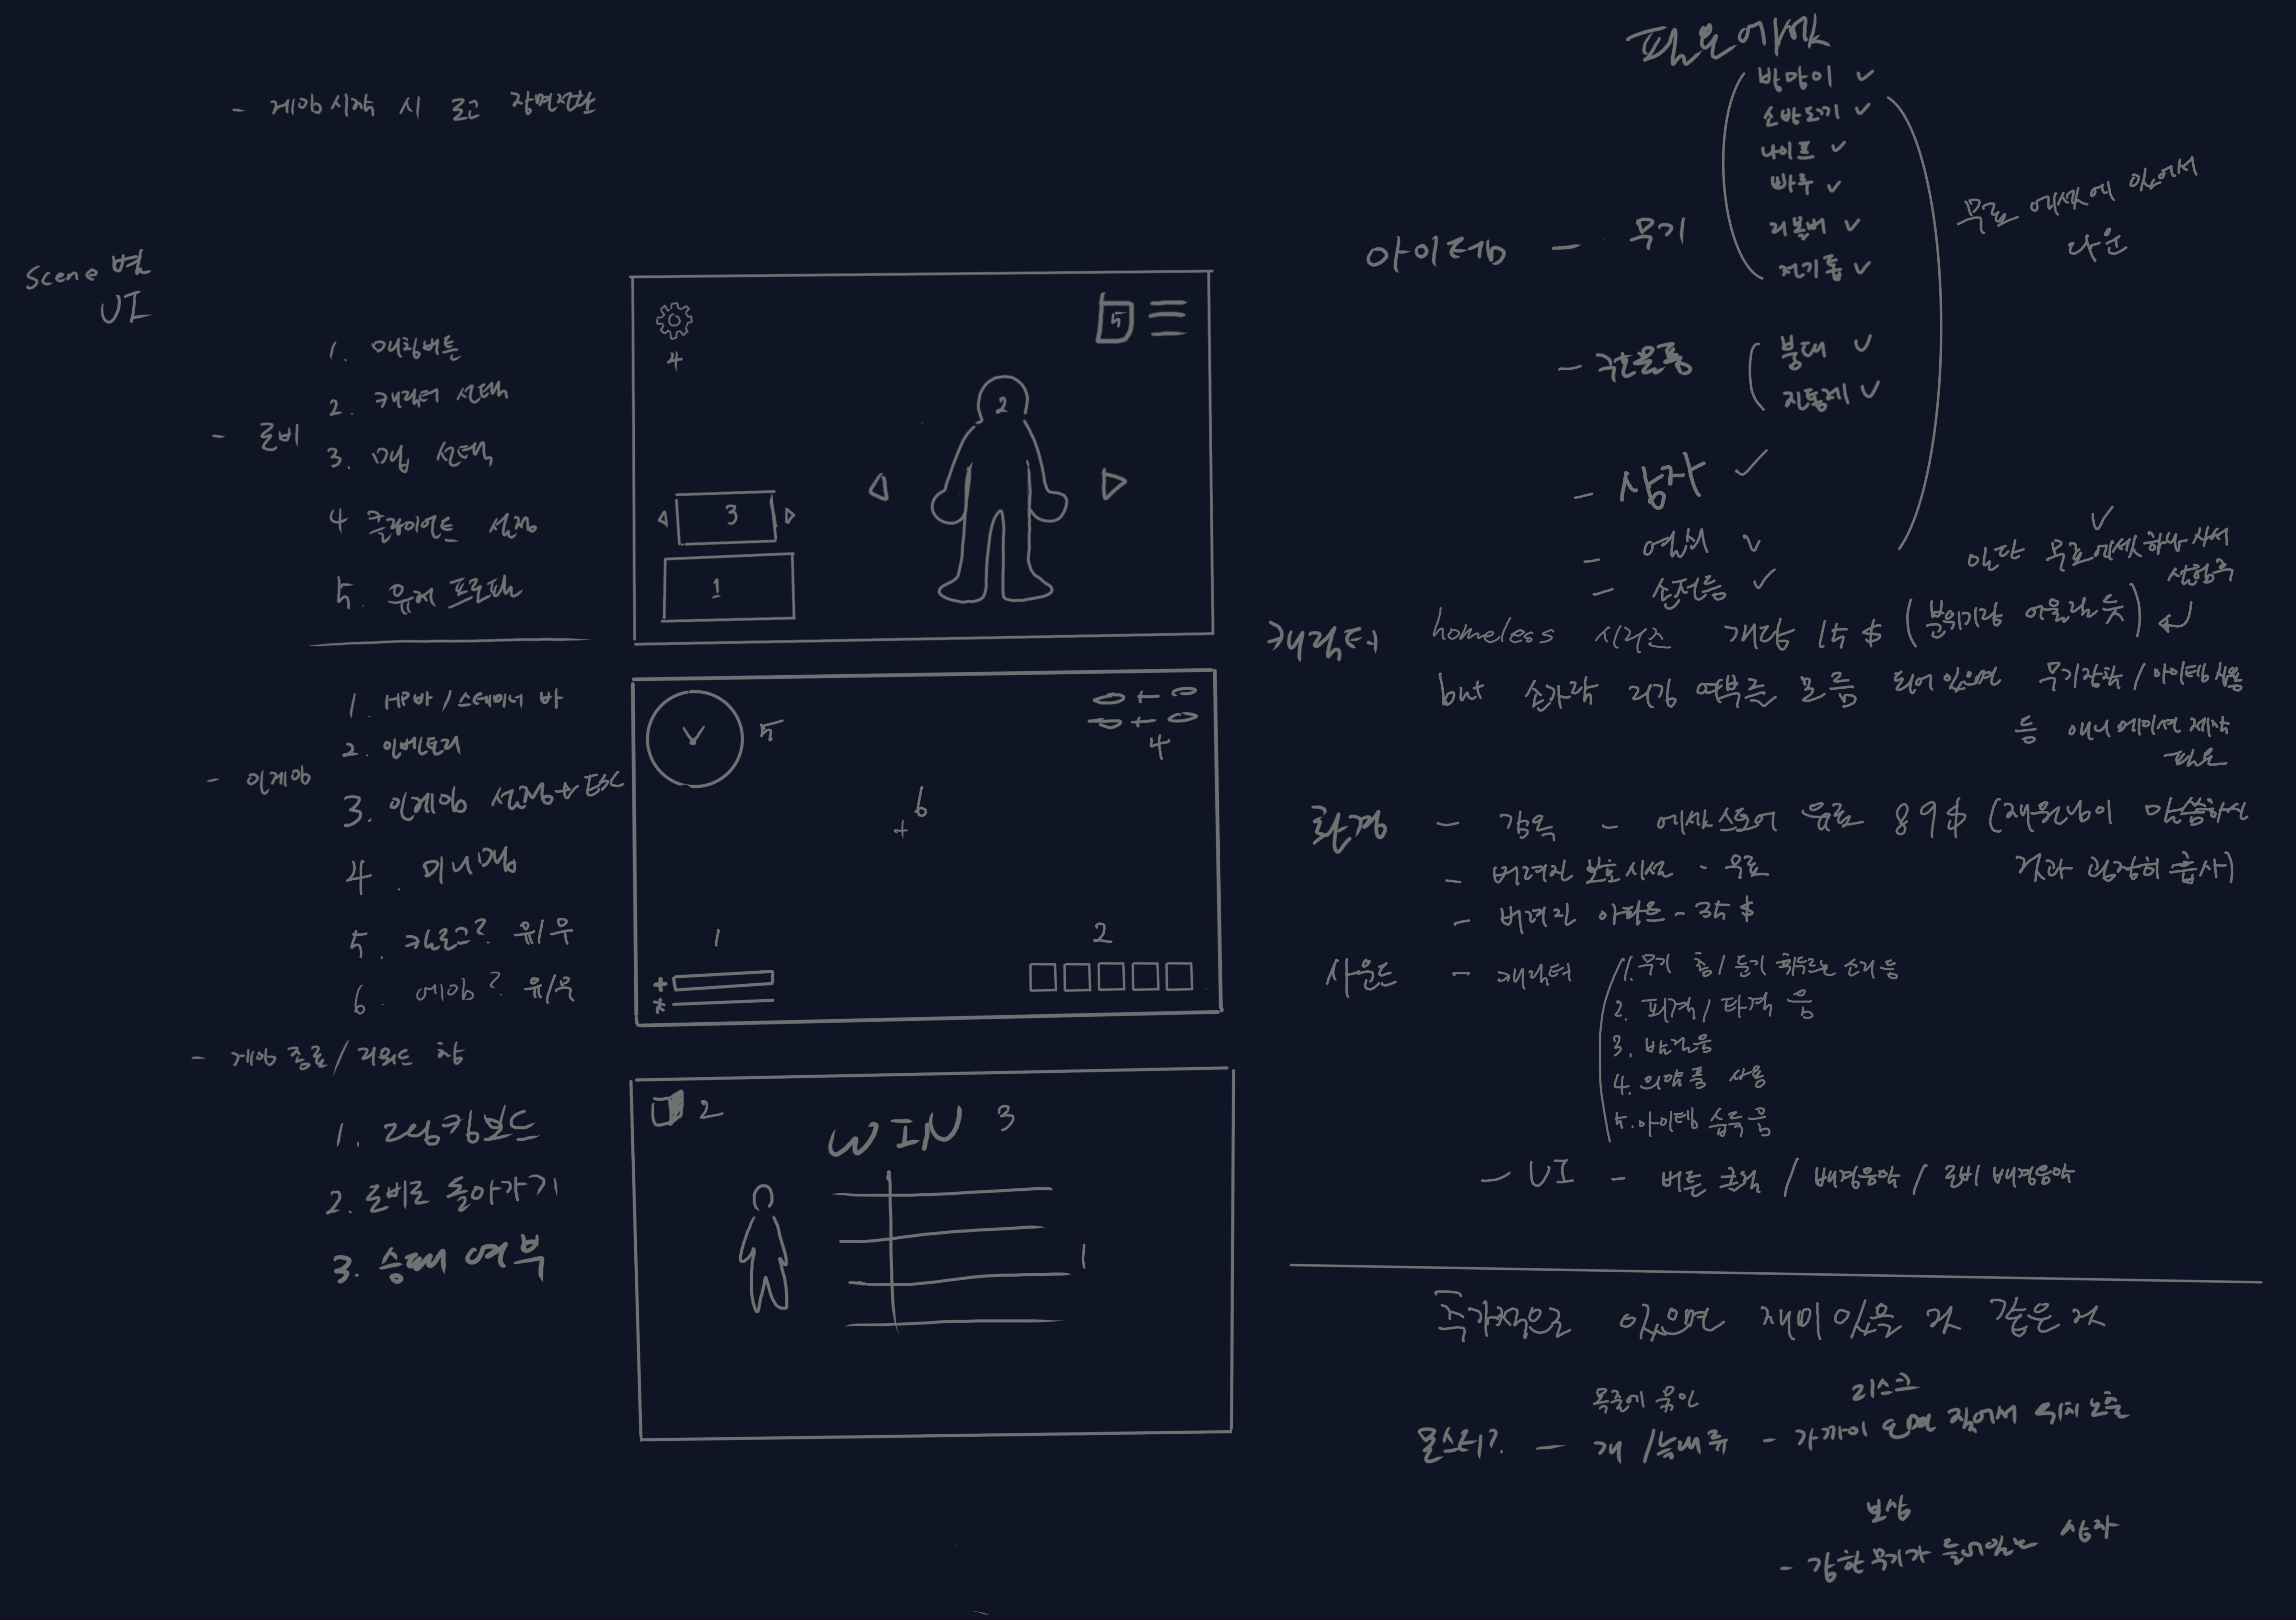 - 게임시작 시 로고 장면전환
Scene 별
UI
- 로비
1. 매칭버튼
2. 캐릭터 선택
3. 맵 선택
4 클라이언트 설정
5. 유저 프로필
4
5
2
3
1
- 인게임
1. HP바 / 스테미너 바
2. 인벤토리
3. 인게임 설정 → ESC
4. 미니맵
5. 킬로그? 유/무
6. 에임? 유/무
5
4
6
1
2
- 게임 종료 / 리워드 창
1. 랭킹보드
2. 로비로 돌아가기
3. 승패 여부
2
WIN 3
1
필요에셋
아이템 - 무기
방망이 ✓
소방도끼 ✓
나이프 ✓
빠루 ✓
리볼버 ✓
전기톱 ✓
무료 에셋에 있어서
다운
- 구호물품
붕대 ✓
진통제 ✓
- 상자 ✓
- 열쇠 ✓
- 손전등 ✓
일단 무료에셋하나 사서
실험쭈
캐릭터 homeless 시리즈 개당 15$ (분위기랑 어울릴듯)
but 손가락 리깅 여부를 모름 되어있으면 무기장착 / 아이템 사용
등 애니메이션 제작
필요
환경 - 감옥 - 에셋스토어 유료 89$ (재원님이 말씀하신
것과 굉장히 흡사)
- 버려진 보호시설 - 무료
- 버려진 아파트 - 35$
사운드 - 캐릭터
1. 무기 총 / 둔기 휘두르는 소리 등
2. 피격 / 타격 음
3. 발걸음
4. 의약품 사용
5. 아이템 습득음
- UI - 버튼 클릭 / 배경음악 / 로비 배경음악
추가적으로 있으면 재미있을 것 같은 것
목줄에 묶인
리스크
몬스터? - 개 / 늑대류 - 가까이 오면 짖어서 위치 노출
보상
- 강한 무기가 들어있는 상자